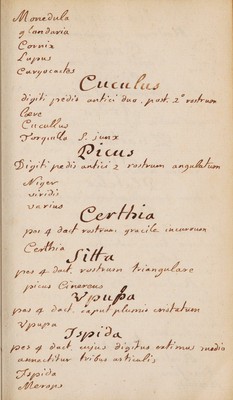 Monedula
glandaria
Cornix
Lupus
Caryocactes
Cuculus
digiti pedis antici duo. post. 2º rostrum
læve
Cucullus
Torquilla S. junx
Picus
Digiti pedis antici 2 rostrum angulatum
Niger
viridis
varius
Certhia
pes 4 dact. rostrum gracile incurvum
Certhia
Sitta
pes 4. dact. rostrum triangulare
picus Cinereus
Vpupa
pes 4 dact. caput plumis cristatum
Vpupa
Ispida
pes 4 dact. cujus digitus extimus medio
annectitur tribus articulis
Ispida
Merops